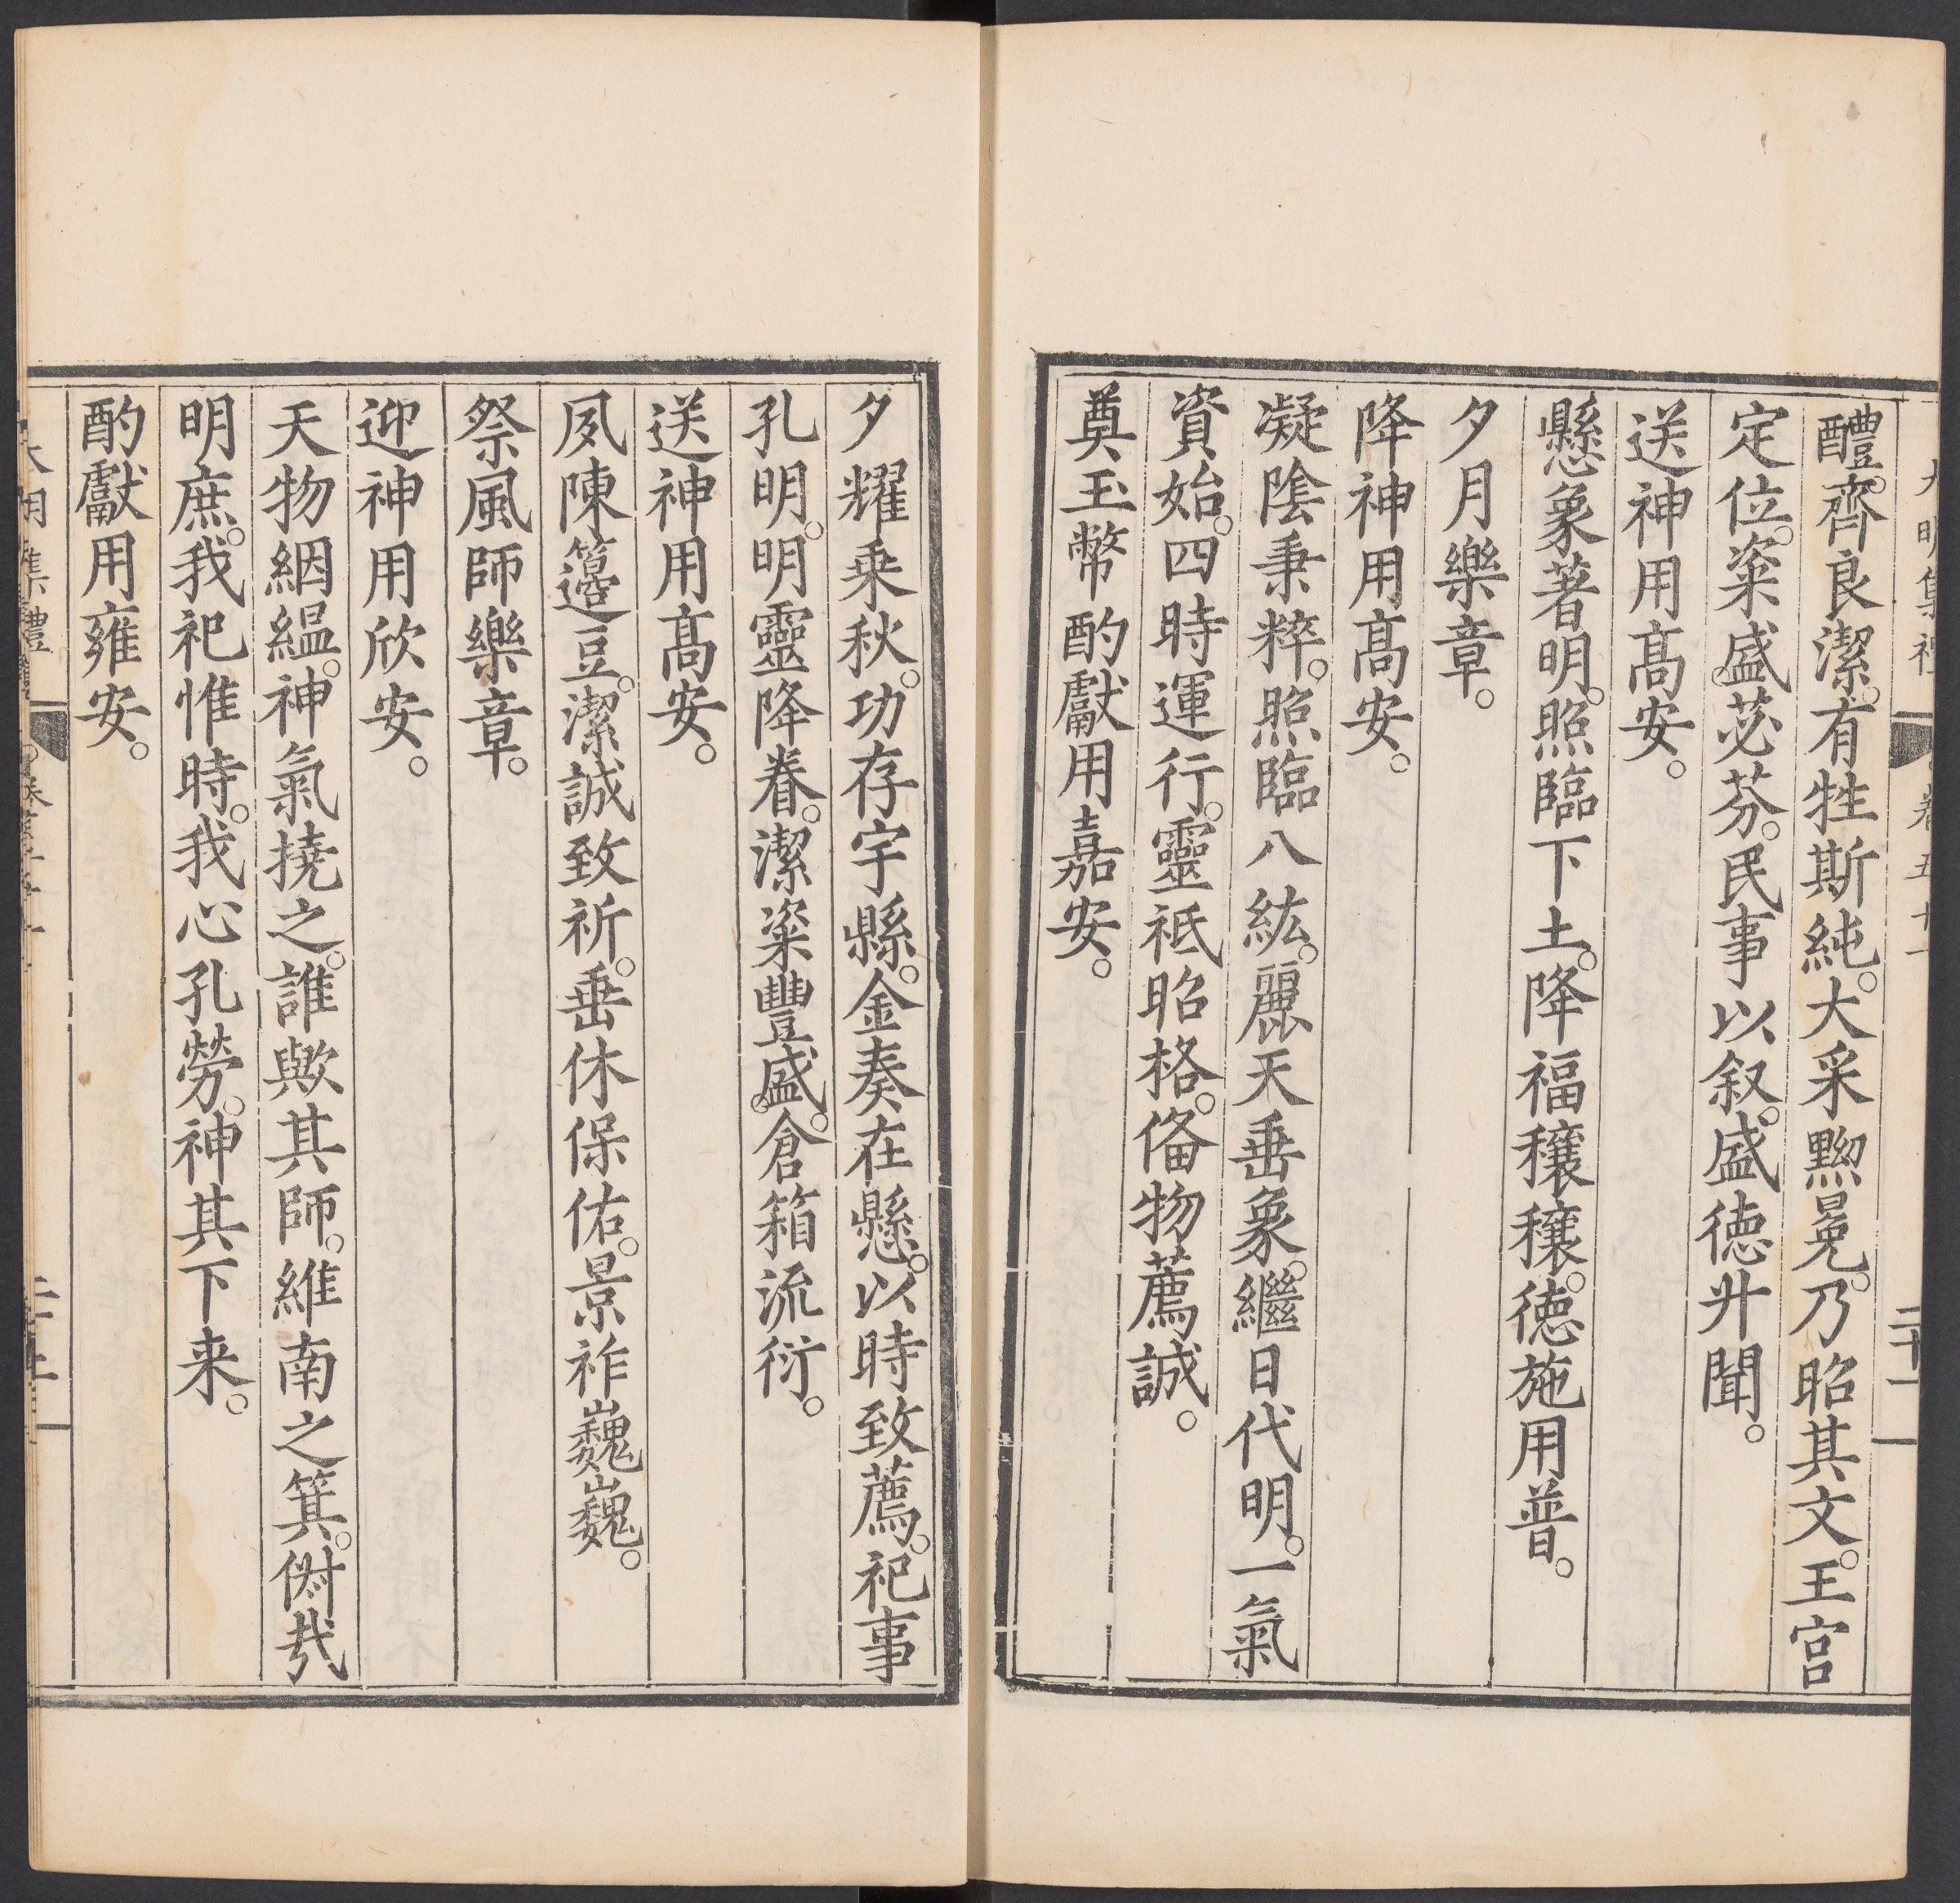 大明集禮 卷五十一 二十一
醴齊良潔。有牲斯純。大采黝冕。乃昭其文。王宮
定位。粢盛苾芬。民事以叙。盛徳升聞。
送神用髙安。
懸象著明。照臨下土。降福穰穰。徳施用普。
夕月樂章。
降神用髙安。
凝陰秉粹。照臨八紘。麗天垂象。繼日代明。一氣
資始。四時運行。靈祇昭格。偹物薦誠。
奠玉幣酌獻用嘉安。
夕耀乗秋。功存宇縣。金奏在懸。以時致薦。祀事
孔明。明靈降眷。潔粢豐盛。倉箱流衍。
送神用髙安。
夙陳籩豆。潔誠致祈。垂休保佑。景祚巍巍。
祭風師樂章。
迎神用欣安。
天物絪縕。神氣撓之。誰歟其師。維南之箕。俶哉
明庶。我祀惟時。我心孔勞。神其下来。
酌獻用雍安。
大明集禮